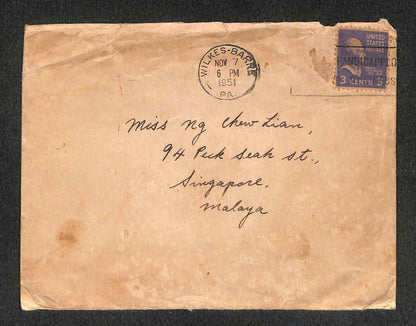 WILKES-BARRE
NOV 7
6 PM
1951
PA.
UNITED
STATES
POSTAGE
3 CENTS 3
HANDICAPPED
Miss Ng Chew Lian,
94 Peck Seah St.,
Singapore.
Malaya